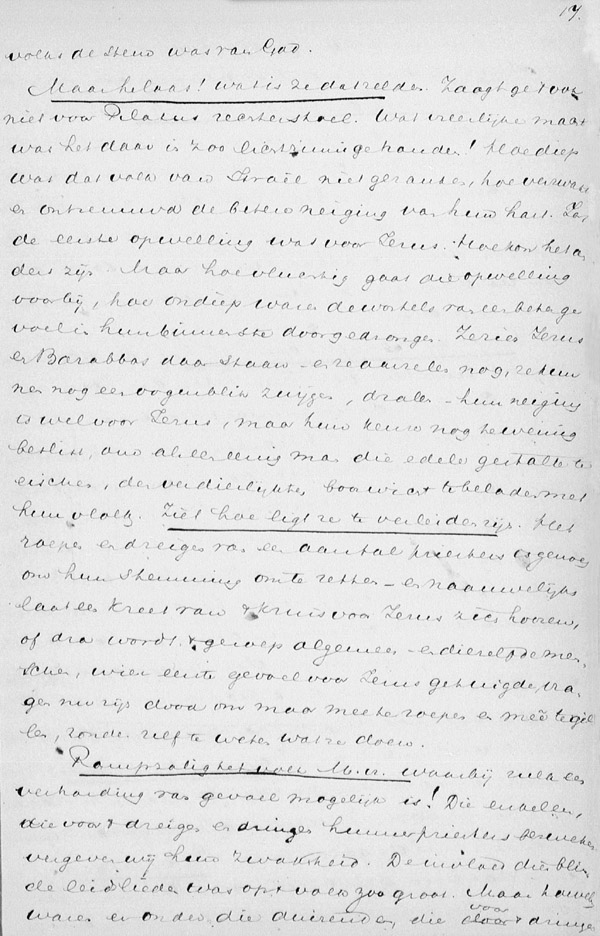 17.
volks de stem was van God.
Maar helaas! wat is ze dat zelden. Zaagt ge 't ook
niet voor Pilatus rechterstoel. Wat vreeslijke maar
was het daar is zoo lichtzinnig gehandeld! Hoe diep
was dat volk van Israël niet gezonken, hoe
en ontzenuwd de betere neiging van hun hart. Zie,
de eerste opwelling was voor Jezus. Hoe kon het an
ders zijn. Maar hoe vluchtig gaat die opwelling
voorbij, hoe ondiep waren de wortels van een beter ge
voel in hun binnenste doorgedrongen. Ze zien Jezus
en Barabbas daar staan - en ze aarzelen nog, ze kun
nen nog een oogenblik zwijgen, dralen - hun neiging
is wel voor Jezus, maar hun keuze nog te weinig
beslist, om als eenig man die edele gestalte te
eischen, den verdierlijkten booswicht te beladen met
hun vloek. Ziet hoe ligt ze te verleiden zijn. Het
roepen en dreigen van een aantal priesters is genoeg
om hun stemming om te zetten - en naauwelijks
laat een kreet van 't kruis voor Jezus zich hooren,
of dra wordt 't geroep algemeen - en diezelfde men
schen, wier eerste gevoel voor Jezus getuigde, vra
gen nu zijn dood om maar mee te roepen en meê te gil
len, zonder zelf te weten wat ze doen.
Rampzalig het volk M. v. waarbij zulk een
verharding van gevoel mogelijk is! Die enkelen,
die voor 't dreigen en dringen hunner priesters bezweken
vergeven wij hun zwakheid. De invloed dier blin
de leidslieden was op 't volk zoo groot. Maar hoevelen
waren er onder die duizenden, die voor 't dringen